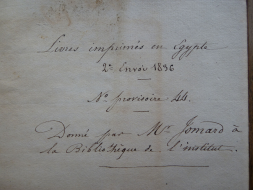 Livres imprimés en Egypte
2e Envoi 1836
No. provisoire 44.
Donné par Mr. Jomard à
la Bibliothèque de l'institut.